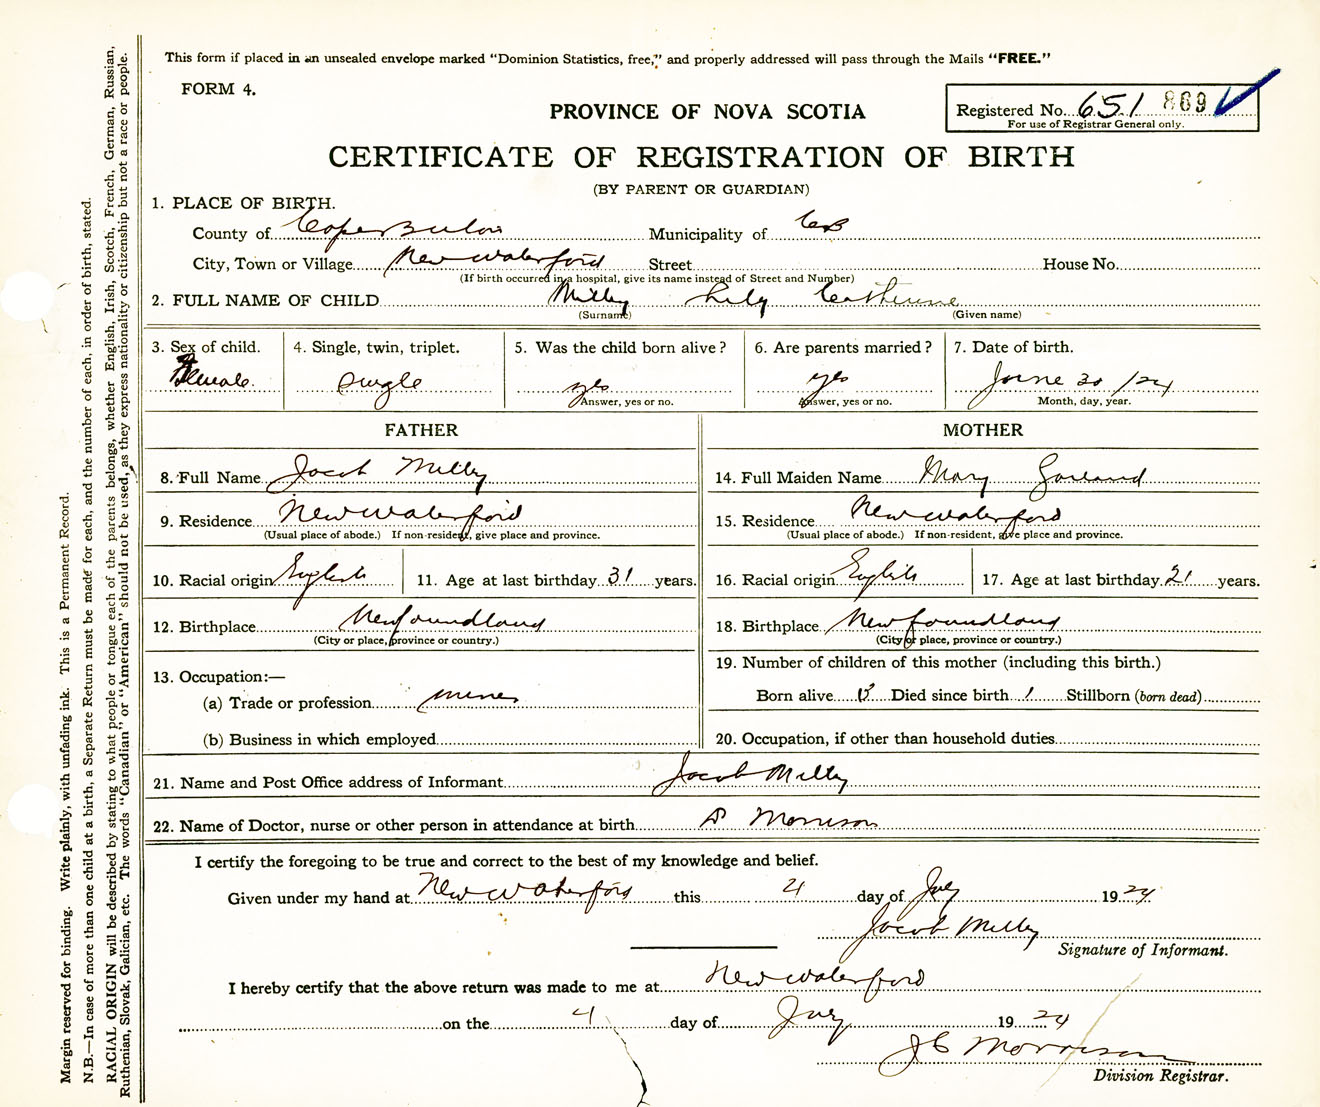 This form if placed in an unsealed envelope marked "Dominion Statistics, free," and properly addressed will pass through the Mails "FREE."
FORM 4.
Registered No. 651 869
For use of Registrar General only.
PROVINCE OF NOVA SCOTIA
CERTIFICATE OF REGISTRATION OF BIRTH
(BY PARENT OR GUARDIAN)
1. PLACE OF BIRTH.
County of Cape Breton Municipality of CB
City, Town or Village New Waterford Street House No.
(If birth occurred in a hospital, give its name instead of Street and Number)
2. FULL NAME OF CHILD Milley Lily Catherine
(Surname) (Given name)
3. Sex of child. 4. Single, twin, triplet. 5. Was the child born alive? 6. Are parents married? 7. Date of birth.
Female single yes yes June 30 /24
Answer, yes or no. Answer, yes or no. Month, day, year.
FATHER MOTHER
8. Full Name Jacob Milley 14. Full Maiden Name Mary Garland
9. Residence New Waterford 15. Residence New Waterford
(Usual place of abode.) If non-resident, give place and province. (Usual place of abode.) If non-resident, give place and province.
10. Racial origin English 11. Age at last birthday 31 years. 16. Racial origin English 17. Age at last birthday 21 years.
12. Birthplace Newfoundland 18. Birthplace Newfoundland
(City or place, province or country.) (City or place, province or country.)
13. Occupation:— 19. Number of children of this mother (including this birth.)
(a) Trade or profession miner Born alive Died since birth 1 Stillborn (born dead)
(b) Business in which employed 20. Occupation, if other than household duties
21. Name and Post Office address of Informant Jacob Milley
22. Name of Doctor, nurse or other person in attendance at birth Morrison
I certify the foregoing to be true and correct to the best of my knowledge and belief.
Given under my hand at New Waterford this 4 day of July 1924
Jacob Milley
Signature of Informant.
I hereby certify that the above return was made to me at New Waterford
on the 4 day of July 1924
J C Morrison
Division Registrar.
Margin reserved for binding. Write plainly, with unfading ink. This is a Permanent Record.
N.B.—In case of more than one child at a birth, a Separate Return must be made for each, and the number of each, in order of birth, stated.
RACIAL ORIGIN will be described by stating to what people or tongue each of the parents belongs, whether English, Irish, Scotch, French, German, Russian,
Ruthenian, Slovak, Galician, etc. The words "Canadian" or "American" should not be used, as they express nationality or citizenship but not a race or people.